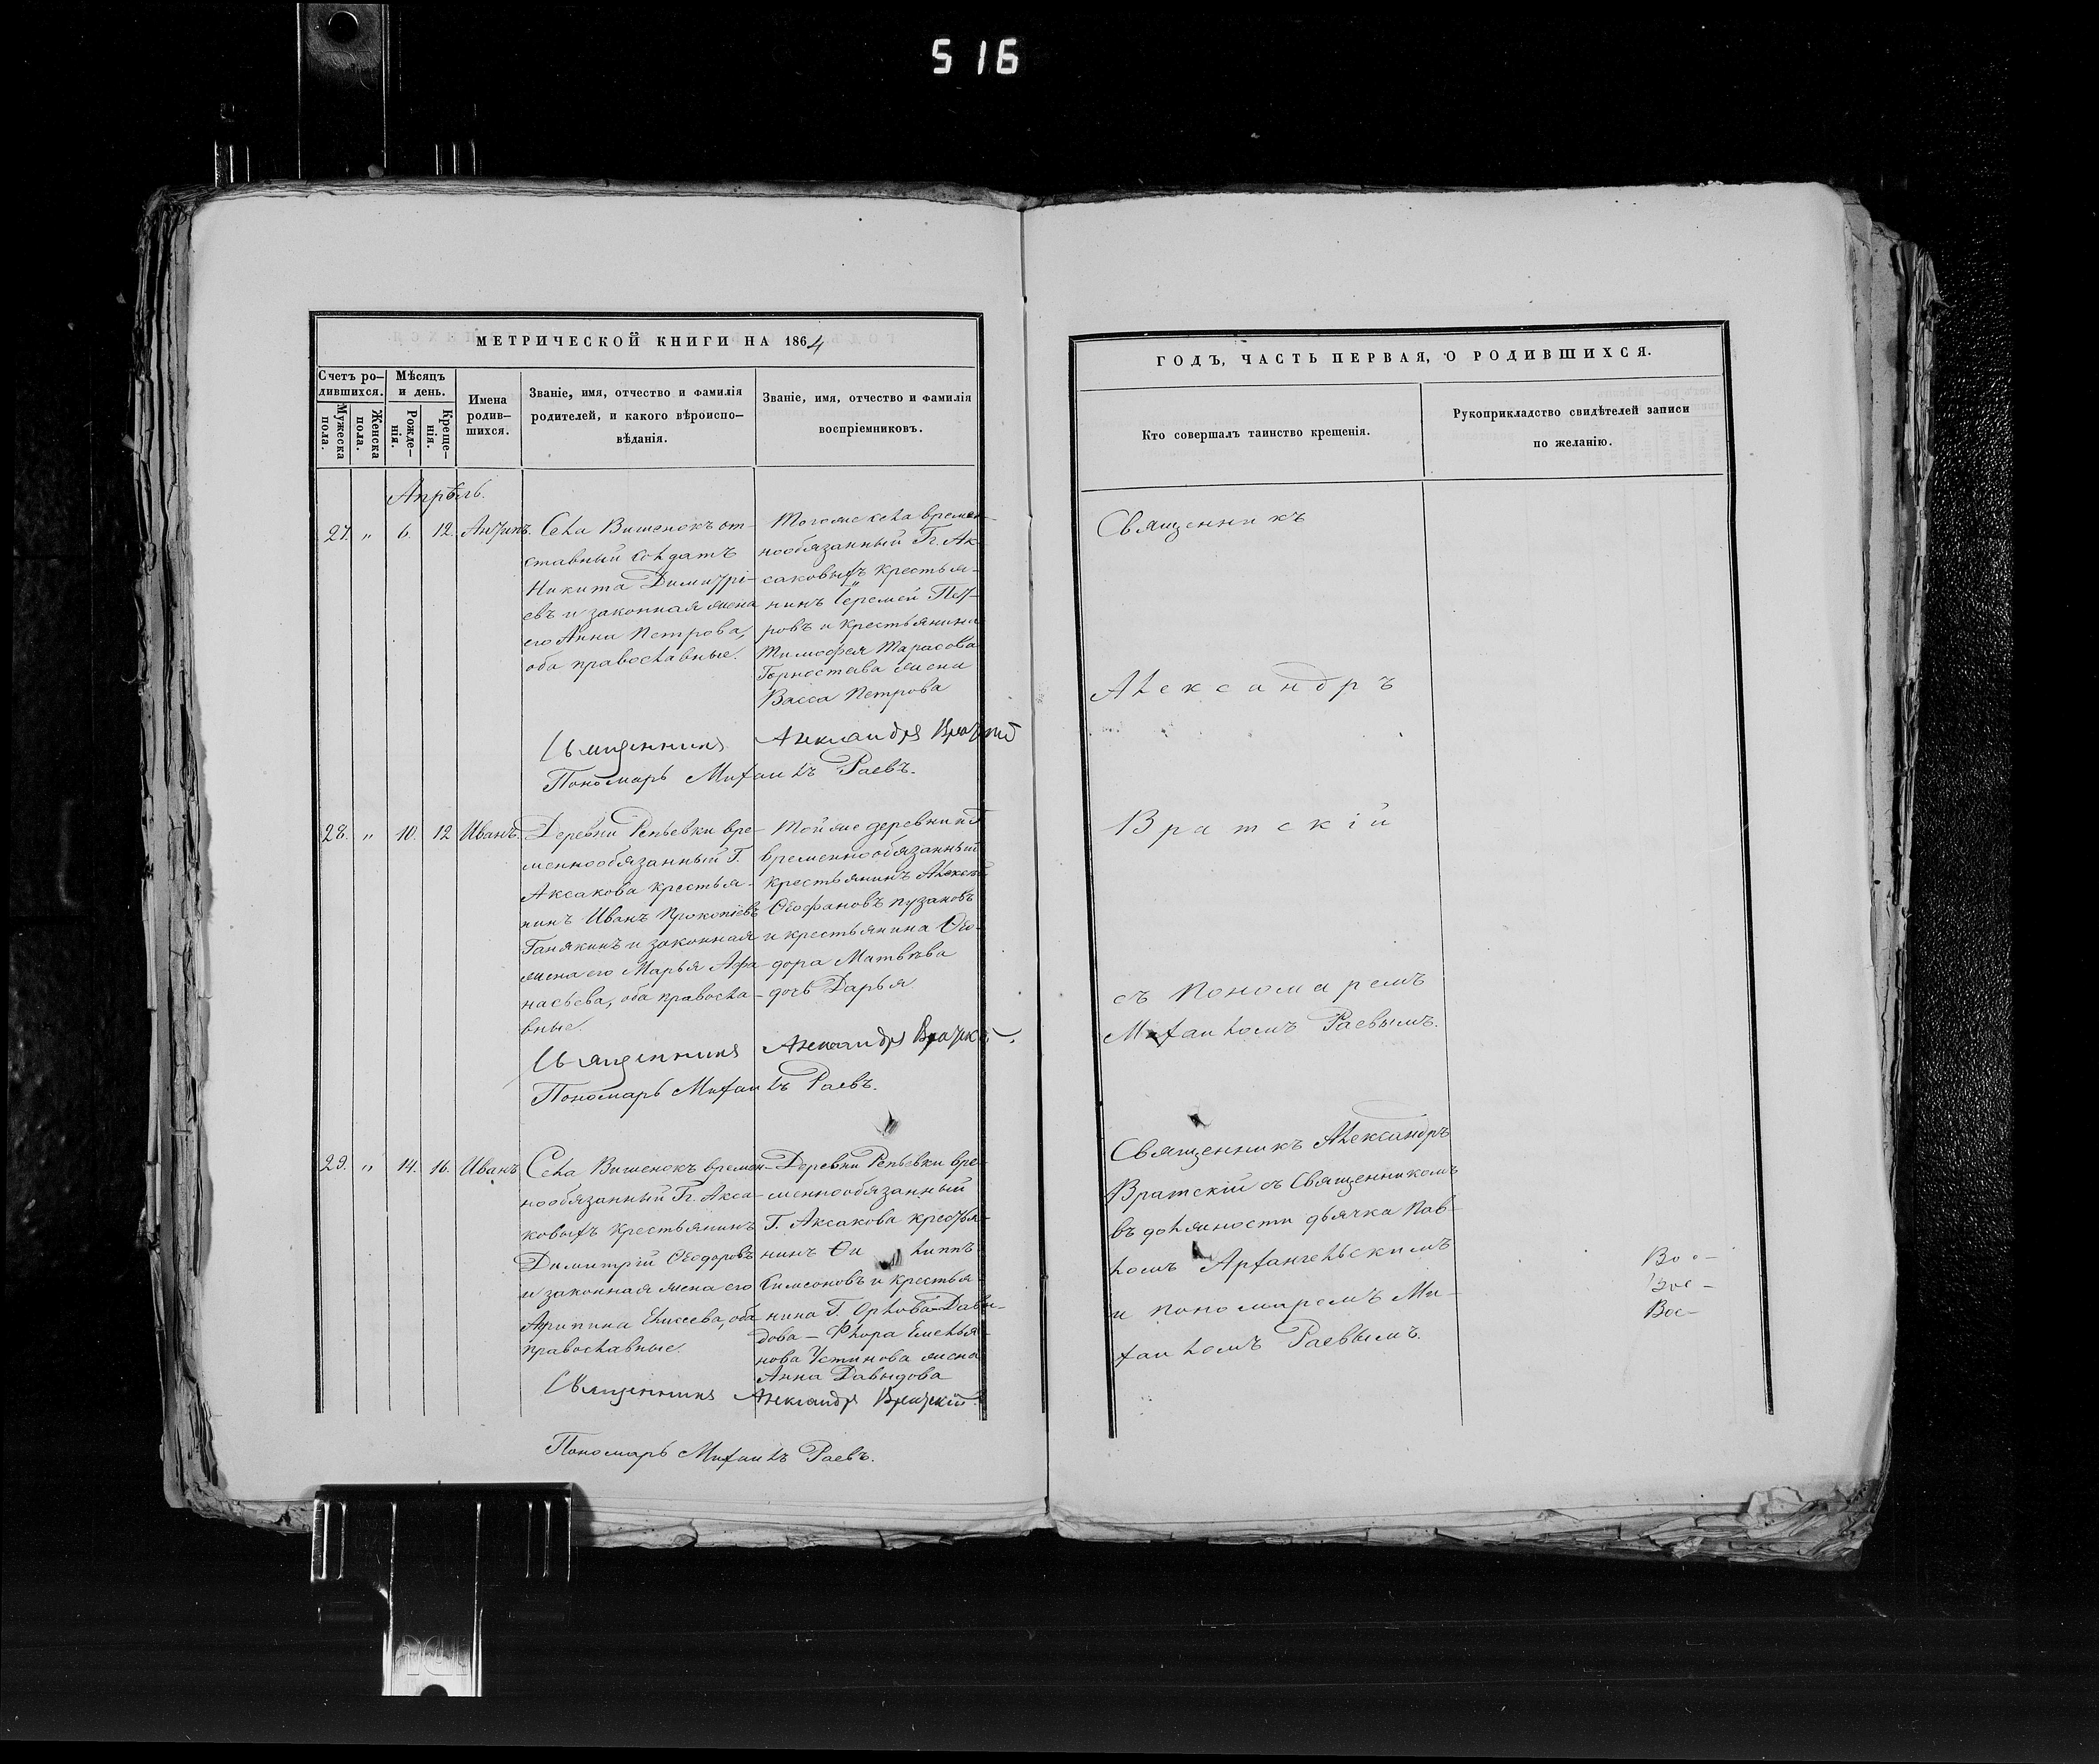 516
МЕТРИЧЕСКОЙ КНИГИ НА 1864
Счетъ ро-
дившихся.
Мужеска
пола.
Женска
пола.
Мѣсяцъ
и день.
Рожде-
нія.
Креще-
нія.
Имена
родив-
шихся.
Званіе, имя, отчество и фамилія
родителей, и какого вѣроиспо-
вѣданія.
Званіе, имя, отчество и фамилія
воспріемниковъ.
Апрѣль.
27. „ 6. 12. Антипъ.
Села Вишенокъ от-
ставный солдатъ
Никита Димитрі-
евъ и законная жена
его Анна Петрова,
оба православные.
Тогоже села времен-
нообязанный Гг. Ак-
саковыхъ крестья-
нинъ Іеремей Пет-
ровъ и крестьянина
Тимофея Тарасова
жена
Васса Петрова
Священникъ Александръ Вратскій
Пономарь Михаилъ Раевъ.
28. „ 10. 12 Иванъ.
Деревни Репьевки вре-
меннообязанный Г.
Аксакова крестья-
нинъ Иванъ Прокопіевъ
Ганякинъ и законная
жена его Марья Афа-
насьева, оба правосла-
вные.
Той же деревни и Г.
временнообязанный
крестьянинъ Алексѣй
Ѳеофановъ Пузаковъ
и крестьянина Ѳео-
дора Матвѣева
дочь Дарья
Священникъ Александръ Вратскій.
Пономарь Михаилъ Раевъ.
29. „ 14. 16. Иванъ
Села Вишенокъ времен-
нообязанный Гг. Акса-
ковыхъ крестьянинъ
Димитрій Ѳеодоровъ
и законная жена его
Агрипина Елисеева, оба
православные.
Деревни Репьевки вре-
меннообязанный
Г. Аксакова крестья-
нинъ Ѳи липпъ
Симеоновъ и крестья-
нина Г. Орлова-Давы-
дова – Флора Емелья-
нова Устинова жена
Анна Давыдова
Священникъ Александръ Вратскій.
Пономарь Михаилъ Раевъ.
ГОДЪ, ЧАСТЬ ПЕРВАЯ, О РОДИВШИХСЯ.
Кто совершалъ таинство крещенія.
Рукоприкладство свидѣтелей записи
по желанію.
Священникъ
Александръ
Вратскій
съ пономаремъ
Михаиломъ Раевымъ.
Священникъ Александръ
Вратскій съ Священникомъ
въ должности дьячка Пав-
ломъ Архангельскимъ
и пономаремъ Ми-
хаиломъ Раевымъ.
Вос-
Вос-
Вос-